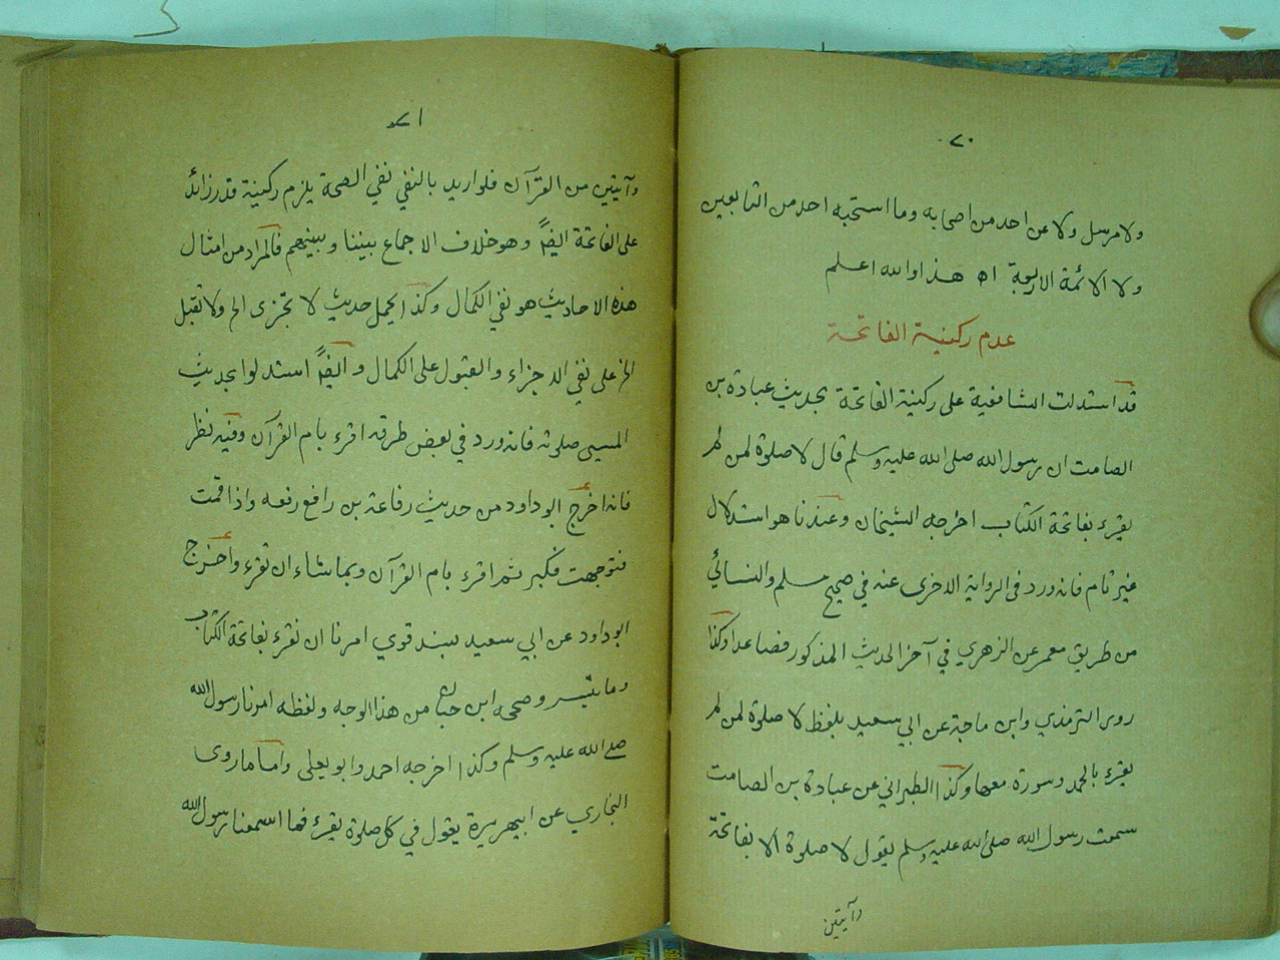 ٧٠
ولا مرسل ولا عن احد من اصحابه وما استحبه احد من التابعين
ولا الائمة الاربعة اه هذا والله اعلم
عدم ركنية الفاتحة
قد استدلت الشافعية على ركنية الفاتحة بحديث عبادة بن
الصامت ان رسول الله صلى الله عليه وسلم قال لا صلوة لمن لم
يقرء بفاتحة الكتاب اخرجه الشيخان وعندنا هو استدلال
غير تام فانه ورد فى الرواية الاخرى عنه في صحيح مسلم والنسائي
من طريق معمر عن الزهري في آخر الحديث المذكور فصاعدا وكذا
روى الترمذي وابن ماجة عن ابي سعيد بلفظ لا صلوة لمن لم
يقرء بالحمد وسورة معها وكذا الطبراني عن عبادة بن الصامت
سمعت رسول الله صلى الله عليه وسلم يقول لا صلوة الا بفاتحة
وآيتين
٧١
وآيتين من القرآن فلو اريد بالنفي نفي الصحة يلزم ركنية قدر زائد
على الفاتحة ايضًا وهو خلاف الاجماع بيننا وبينهم فالمراد من امثال
هذه الاحاديث هو نفي الكمال وكذا يحمل حديث لا تجزى الخ ولا تقبل
الخ على نفي الاجزاء والقبول على الكمال وايضًا استدلوا بحديث
المسيى صلوته فانه ورد في بعض طرقه اقرء بام القرآن وفيه نظر
فانه اخرج ابو داود من حديث رفاعة بن رافع رفعه واذا قمت
فتوجهت فكبر ثم اقرء بام القرآن وبما شاء ان تقرء واخرج
ابو داود عن ابي سعيد بسند قوي امرنا ان نقرء بفاتحة الكتاب
وما تيسر وصححه ابن حبان من هذا الوجه ولفظه امرنا رسول الله
صلے الله عليه وسلم وكذا اخرجه احمد وابو يعلى واما ما روى
البخاري عن ابيهريرة يقول في كل صلوة يقرء فما اسمعنا رسول الله